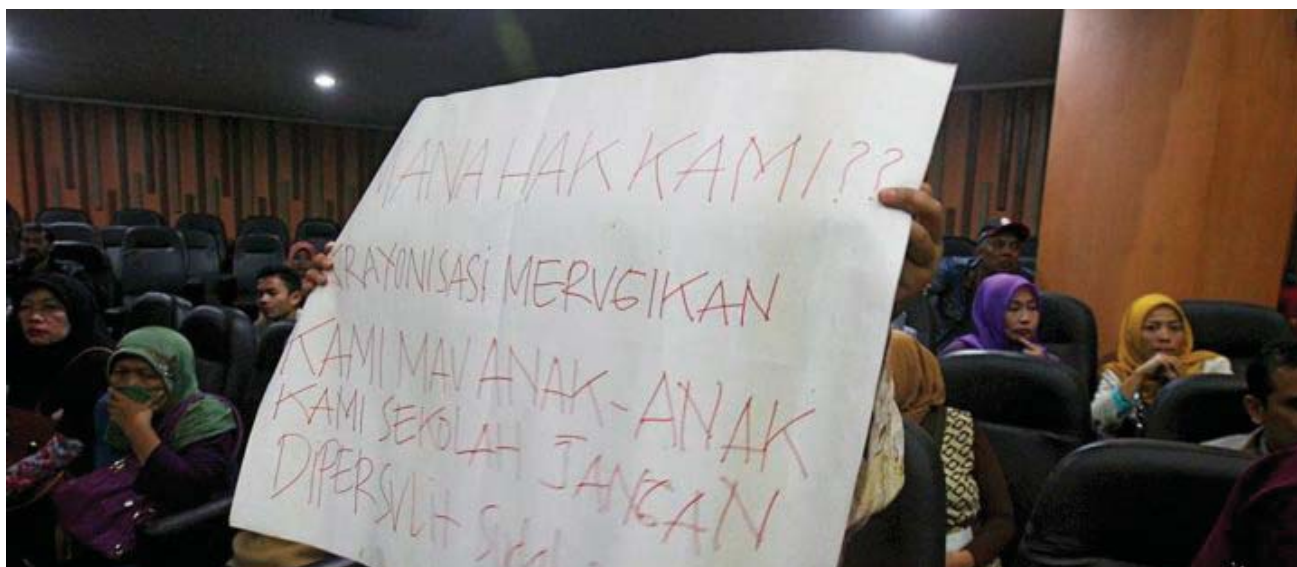 MANA HAK KAMI??
KRAYONISASI MERUGIKAN
KAMI MAU ANAK-ANAK
KAMI SEKOLAH JANGAN
DIPERSULIT